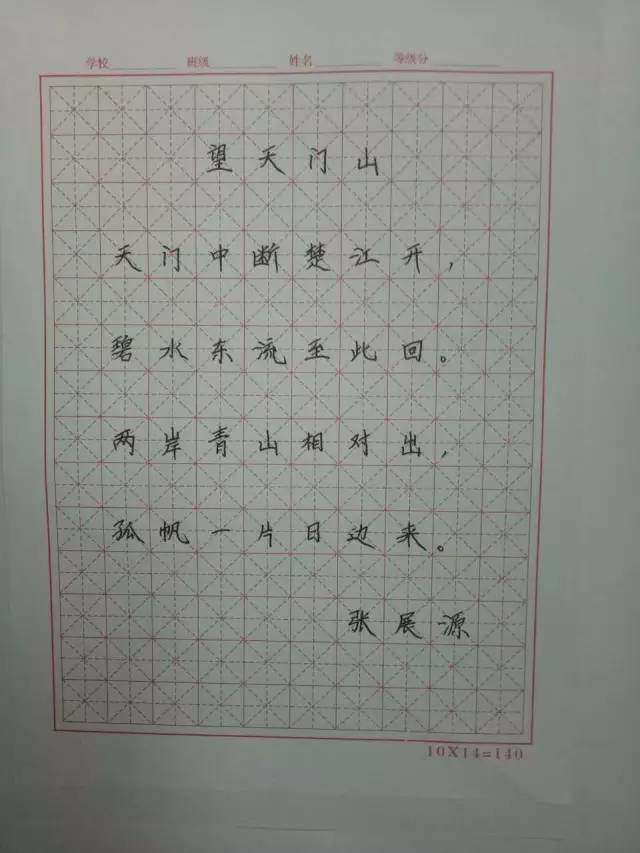 学校 班级 姓名 等级分
望天门山
天门中断楚江开，
碧水东流至此回。
两岸青山相对出，
孤帆一片日边来。
张展源
10X14=140